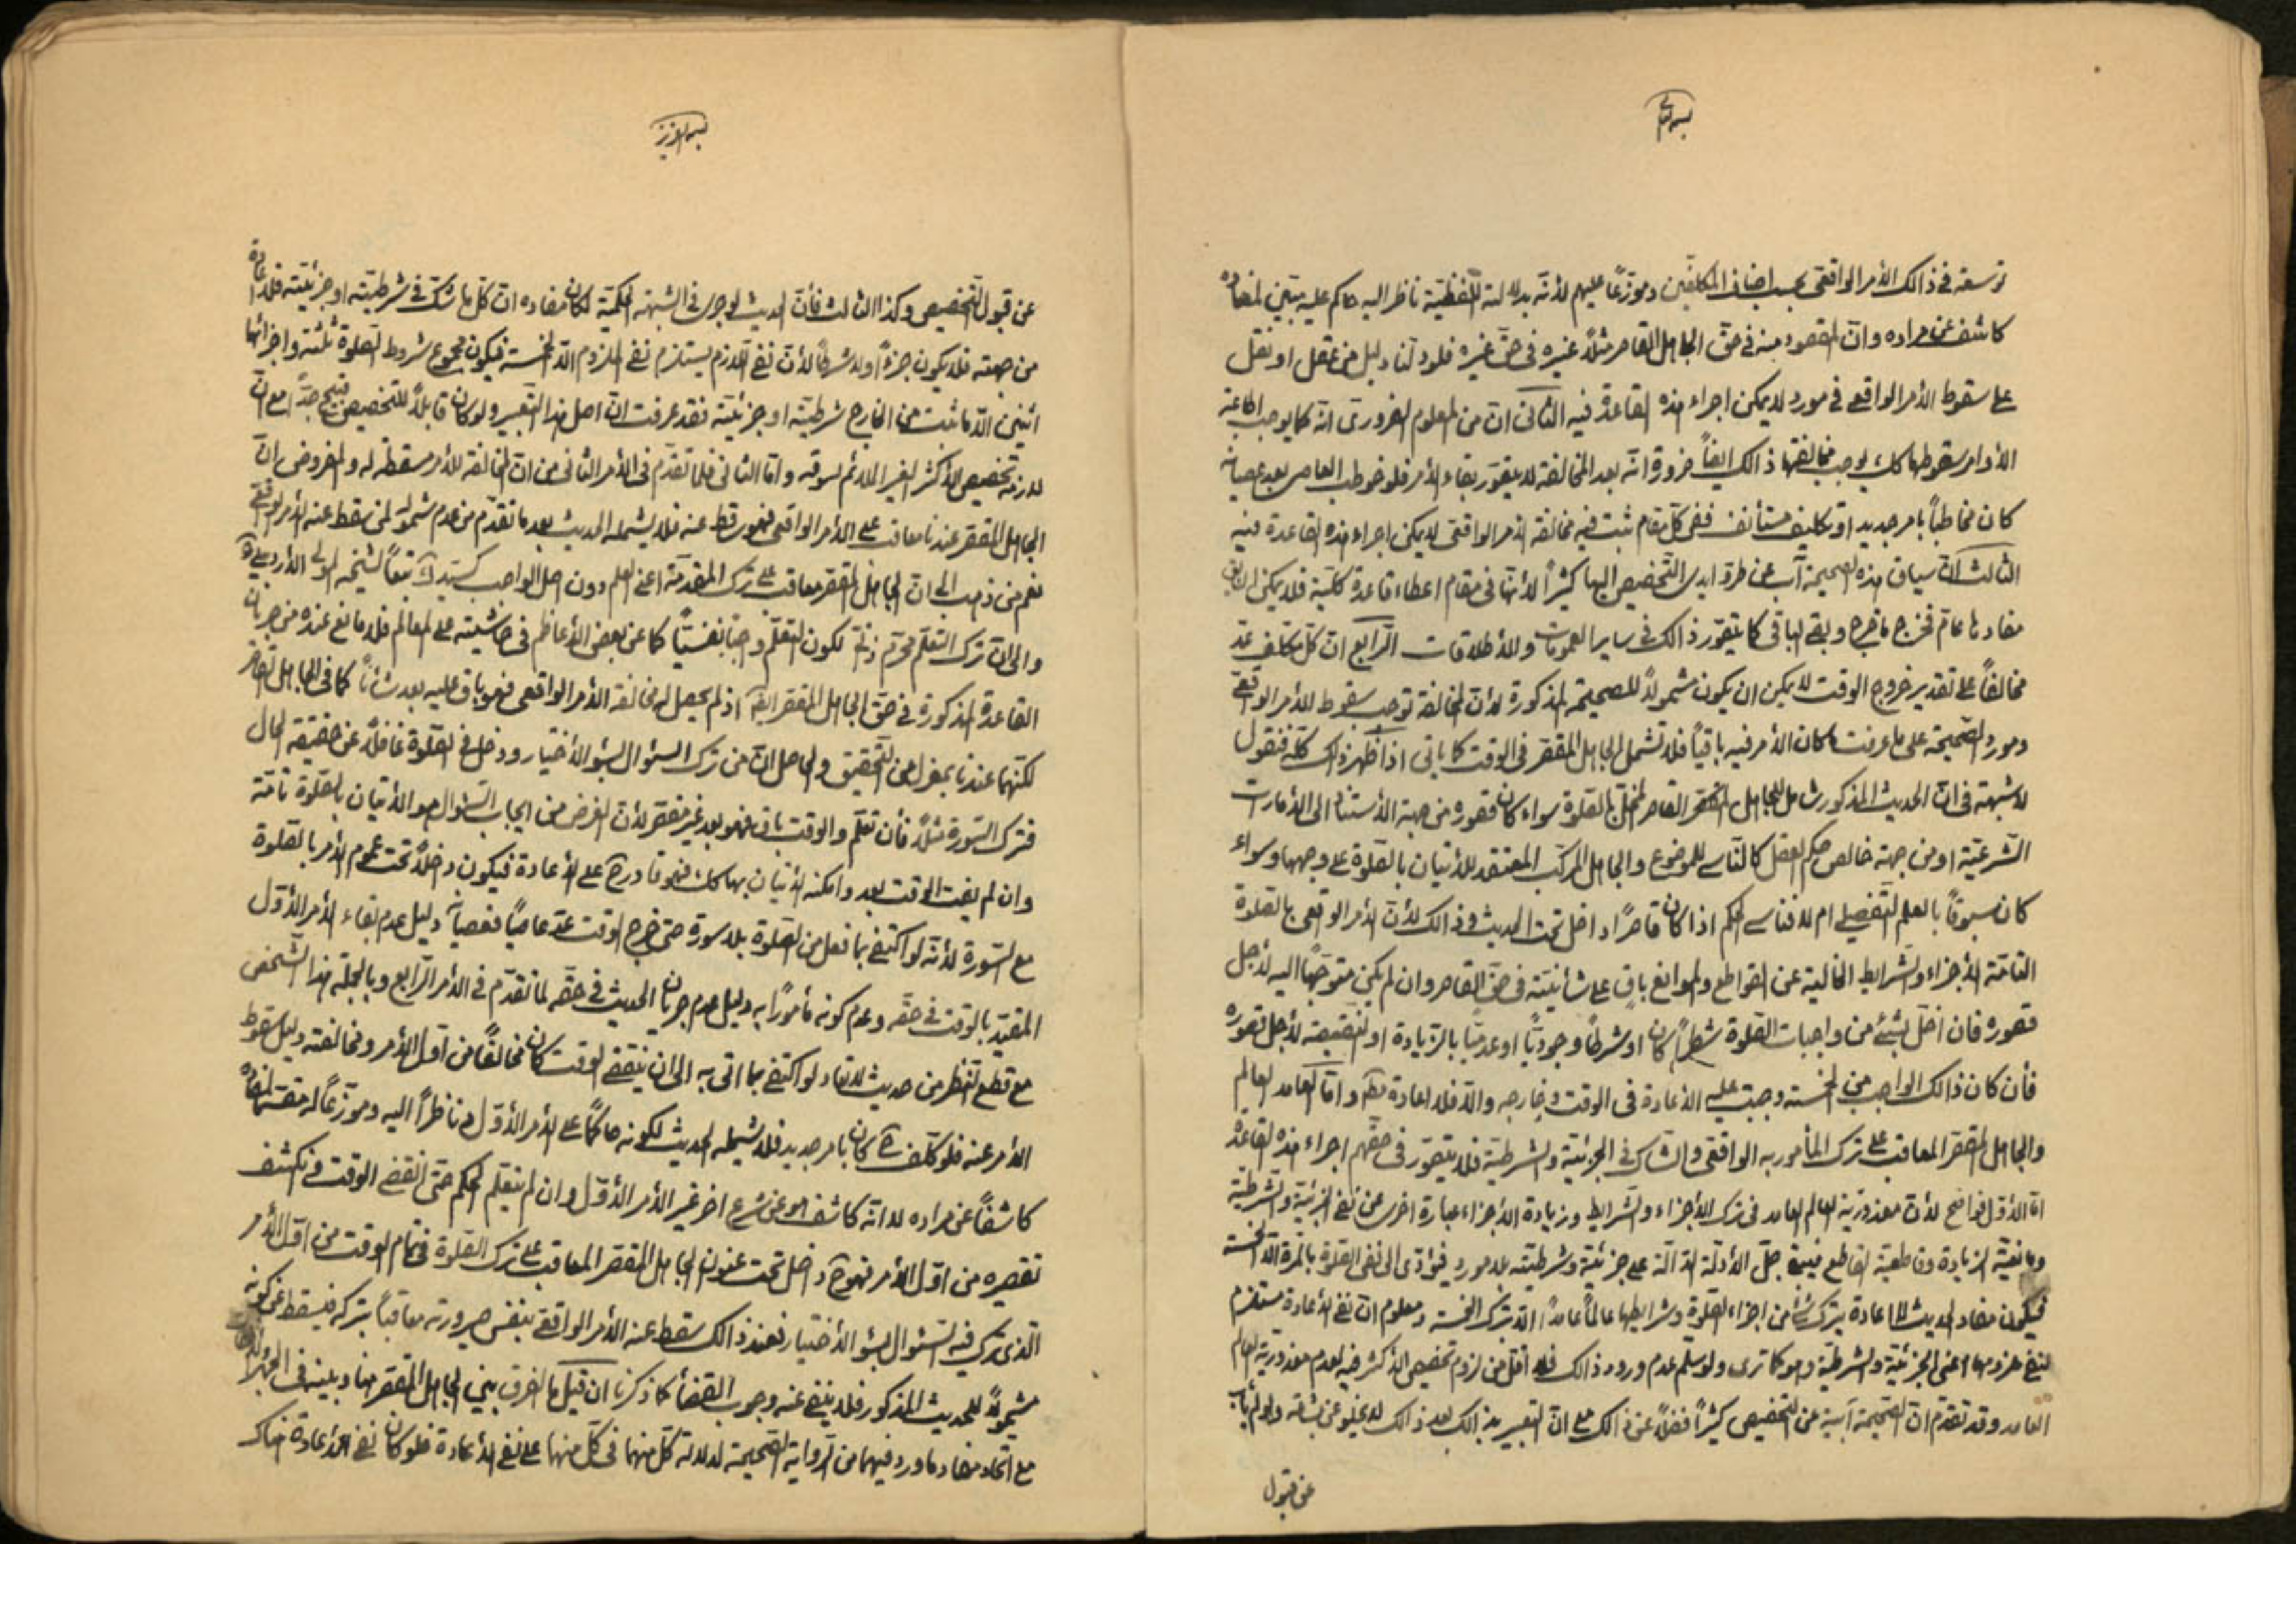 بسمه تعالی
توسعة فی ذالک الأمر الواقعی بحسب اصناف المکلفین وموزعاً علیهم لأنّه بدلالته اللّفظیّة ناظر الیه حاکم علیه مبیّن لمفاده
کاشف عن مراده وانّ المقصود منه فی حقّ الجاهل القاصر مثلاً غیره فی حقّ غیره فلو دلّنا دلیل من عقل او نقل
علی سقوط الأمر الواقعی فی مورد لا یمکن اجراء هذه القاعدة فیه الثانی انّ من المعلوم الضروری انّه کما یوجب اطاعة
الأوامر سقوطها کک یوجب مخالفتها ذالک ایضاً ضرورة انّه بعد المخالفة لا یتصوّر بقاء الأمر فلو خوطب العاصی بعد عصیانه
کان مخاطباً بامر جدید او تکلیف مستأنف ففی کلّ مقام ثبت فیه مخالفة الأمر الواقعی لا یمکن اجراء هذه القاعدة فیه
الثالث انّ سیاق هذه الصحیحة آب عن طروّ ایدی التّخصیص الیها کثیراً لأنّها فی مقام اعطاء قاعدة کلیّة فلا یمکن ان یقال
مفادها عام خرج ما خرج وبقی الباقی کما یتصوّر ذالک فی سایر العمومات والأطلاقات الرّابع انّ کلّ مکلف عدّ
مخالفاً علی تقدیر خروج الوقت لا یمکن ان یکون مشمولاً للصحیحة المذکورة لأنّ المخالفة توجب سقوط الأمر الواقعی
ومورد الصّحیحة علی ما عرفت ما کان الأمر فیه باقیاً فلا تشمل الجاهل المقصّر فی الوقت کما یأتی اذا ظهر ذالک کلّه فنقول
لا شبهة فی انّ الحدیث المذکور شامل للجاهل القاصر المخلّ بالصّلوة سواء کان قصوره من جهة الأستناد الی الأمارات
الشّرعیّة او من جهة خالص حکم العقل کالنّاسی للموضوع والجاهل المرکّب المعتقد للأتیان بالصّلوة علی وجهها وسواء
کان مسبوقاً بالعلم التّفصیلی ام لا فناسی الحکم اذا کان قاصراً داخل تحت الحدیث وذالک لأنّ الأمر الواقعی بالصّلوة
التامّة الأجزاء والشّرایط الخالیة عن القواطع والموانع باق علی شأنیّته فی حقّ القاصر وان لم یکن متوجّهاً الیه لأجل
قصوره فان اخلّ بشیئ من واجبات الصّلوة شطراً کان او شرطاً وجودیّاً او عدمیّاً بالزّیادة او النّقیصة لأجل قصوره
فأن کان ذالک الواجب من الخمسة وجبت علیه الأعادة فی الوقت وخارجه والّا فلا اعادة مط وامّا العامد العالم
والجاهل المقصّر المعاقب علی ترک المأمور به الواقعی والشّاک فی الجزئیّة والشرطیّة فلا یتصوّر فی حقّهم اجراء هذه القاعدة
امّا الأوّل فواضح لأنّ معذوریّة العالم العامد فی ترک الأجزاء والشّرایط وزیادة الأجزاء عبارة اخری عن نفی الجزئیّة والشرطیّة
ومانعیّة الزیادة وقاطعیّة القاطع فیبقی جلّ الأدلّة الدالّة علی جزئیّته وشرطیّته بلا مورد فیؤدّی الی نفی الصّلوة بالمرّة الّا الخمسة
فیکون مفاد الحدیث لا اعادة بترک شئ من اجزاء الصّلوة وشرایطها عالماً عامداً الّا بترک الخمسة ومعلوم انّ نفی الأعادة مستلزم
لنفی ملزومها اعنی الجزئیّة والشرطیّة وهو کما تری ولو سلّم عدم ورود ذالک فلا اقلّ من لزوم تخصیص الأکثر فیه لعدم معذوریة العالم
العامد وقد تقدّم انّ الصّحیحة آبیة عن التّخصیص کثیراً فضلاً عن ذالک مع انّ التّعبیر بذالک بعد ذالک لا یخلو عن بشاعة ولو لم یأب
عن قبول
بسمه العزیز
عن قبول التّخصیص وکذا الثالث فأنّ الحدیث لو جری فی الشبهة الحکمیّة لکان مفاده انّ کلّ ما شکّ فی شرطیّته او جزئیّته فلا اعادة
من جهته فلا یکون جزءً ولا شرطاً لأنّ نفی اللازم یستلزم نفی الملزوم الّا الخمسة فیکون مجموع شروط الصّلوة ثلثة واجزائها
اثنین الّا ما ثبت من الخارج شرطیّته او جزئیّته فقد عرفت انّ اصل هذا التّعبیر ولو کان قابلاً للتخصیص قبیح جدّاً مع انّ
لازمه تخصیص الأکثر الغیر الملائم لسوقه وامّا الثانی فلما تقدّم فی الأمر الثانی من انّ المخالفة للأمر مسقطة له والمفروض انّ
الجاهل المقصّر عندنا معاقب علی الأمر الواقعی فهو ساقط عنه فلا یشمله الحدیث بعد ما تقدّم من عدم شموله لمن سقط عنه الأمر الواقعی
نعم من ذهب الی انّ الجاهل المقصّر معاقب علی ترک المقدّمة اعنی العلم دون اصل الواجب کسیّد المدارک تبعاً لشیخه المولی الأردبیلی ره
والی انّ ترک التعلّم محرّم ذاتیّ لکون التعلّم واجباً نفسیّاً کما عن بعض الأعاظم فی حاشیته علی المعالم فلا مانع عنده من جریان
القاعدة المذکورة فی حقّ الجاهل المقصّر ایضاً اذ لم یحصل له مخالفة الأمر الواقعی فهو باق علیه بعد شأناً کما فی الجاهل القاصر
لکنّهما عندنا بمعزل من التّحقیق والحاصل انّ من ترک السؤال بسوء الأختیار ودخل فی الصّلوة غافلاً عن حقیقة الحال
فترک السّورة مثلاً فأن تعلّم والوقت باق فهو بعد غیر مقصّر لأنّ الغرض من ایجاب السّؤال هو الأتیان بالصّلوة تامّة
وان لم یفت الوقت بعد وامکنه الأتیان بها کک فهو قادر ح علی الأعادة فیکون داخلاً تحت عموم الأمر بالصّلوة
مع السّورة لأنّه لو اکتفی بما فعل من الصّلوة بلا سورة حتی خرج الوقت عدّ عاصیاً فعصیانه دلیل عدم بقاء الأمر الأوّل
المقیّد بالوقت فی حقّه وعدم کونه مأموراً به دلیل عدم جریان الحدیث فی حقّه لما تقدّم فی الأمر الرّابع وبالجملة هذا الشّخص
مع قطع النّظر من حدیث لا تعاد لو اکتفی بما اتی به الی ان ینقضی الوقت کان مخالفاً من اوّل الأمر ومخالفته دلیل سقوط
الأمر عنه فلو کلّف ح کان بامر جدید فلا یشمله الحدیث لکونه حاکماً علی الأمر الأوّل وناظراً الیه وموزّعاً له
کاشفاً عن مراده لا انّه کاشف هو عن شرع اخر غیر الأمر الأوّل وان لم یتعلّم الحکم حتی انقضی الوقت فانکشف
تقصیره من اوّل الأمر فهو ح داخل تحت عنوان الجاهل المقصّر المعاقب علی ترک الصّلوة فی تمام الوقت من اوّل الأمر
الّذی ترک فیه السّؤال بسوء الأختیار فعند ذالک سقط عنه الأمر الواقعی بنفس صیرورته معاقباً بترکه فیسقط عن کونه
مشمولاً للحدیث المذکور فلا ینفی عنه وجوب القضأ کما ذکرنا ان قیل ما الفرق بین الجاهل المقصّر هنا وبینه فی الجهر
مع اتّحاد مفاد ما ورد فیهما من الرّوایة الصّحیحة لدلالة کلّ منهما فی کلّ منهما علی نفی الأعادة فلو کان نفی الأعادة هناک